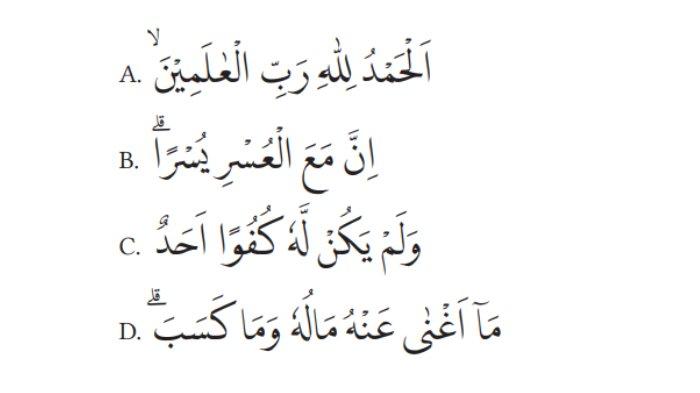 A. اَلْحَمْدُ لِلّٰهِ رَبِّ الْعٰلَمِيْنَۙ
B. اِنَّ مَعَ الْعُسْرِ يُسْرًاۗ
C. وَلَمْ يَكُنْ لَّهٗ كُفُوًا اَحَدٌ
D. مَآ اَغْنٰى عَنْهُ مَالُهٗ وَمَا كَسَبَۗ